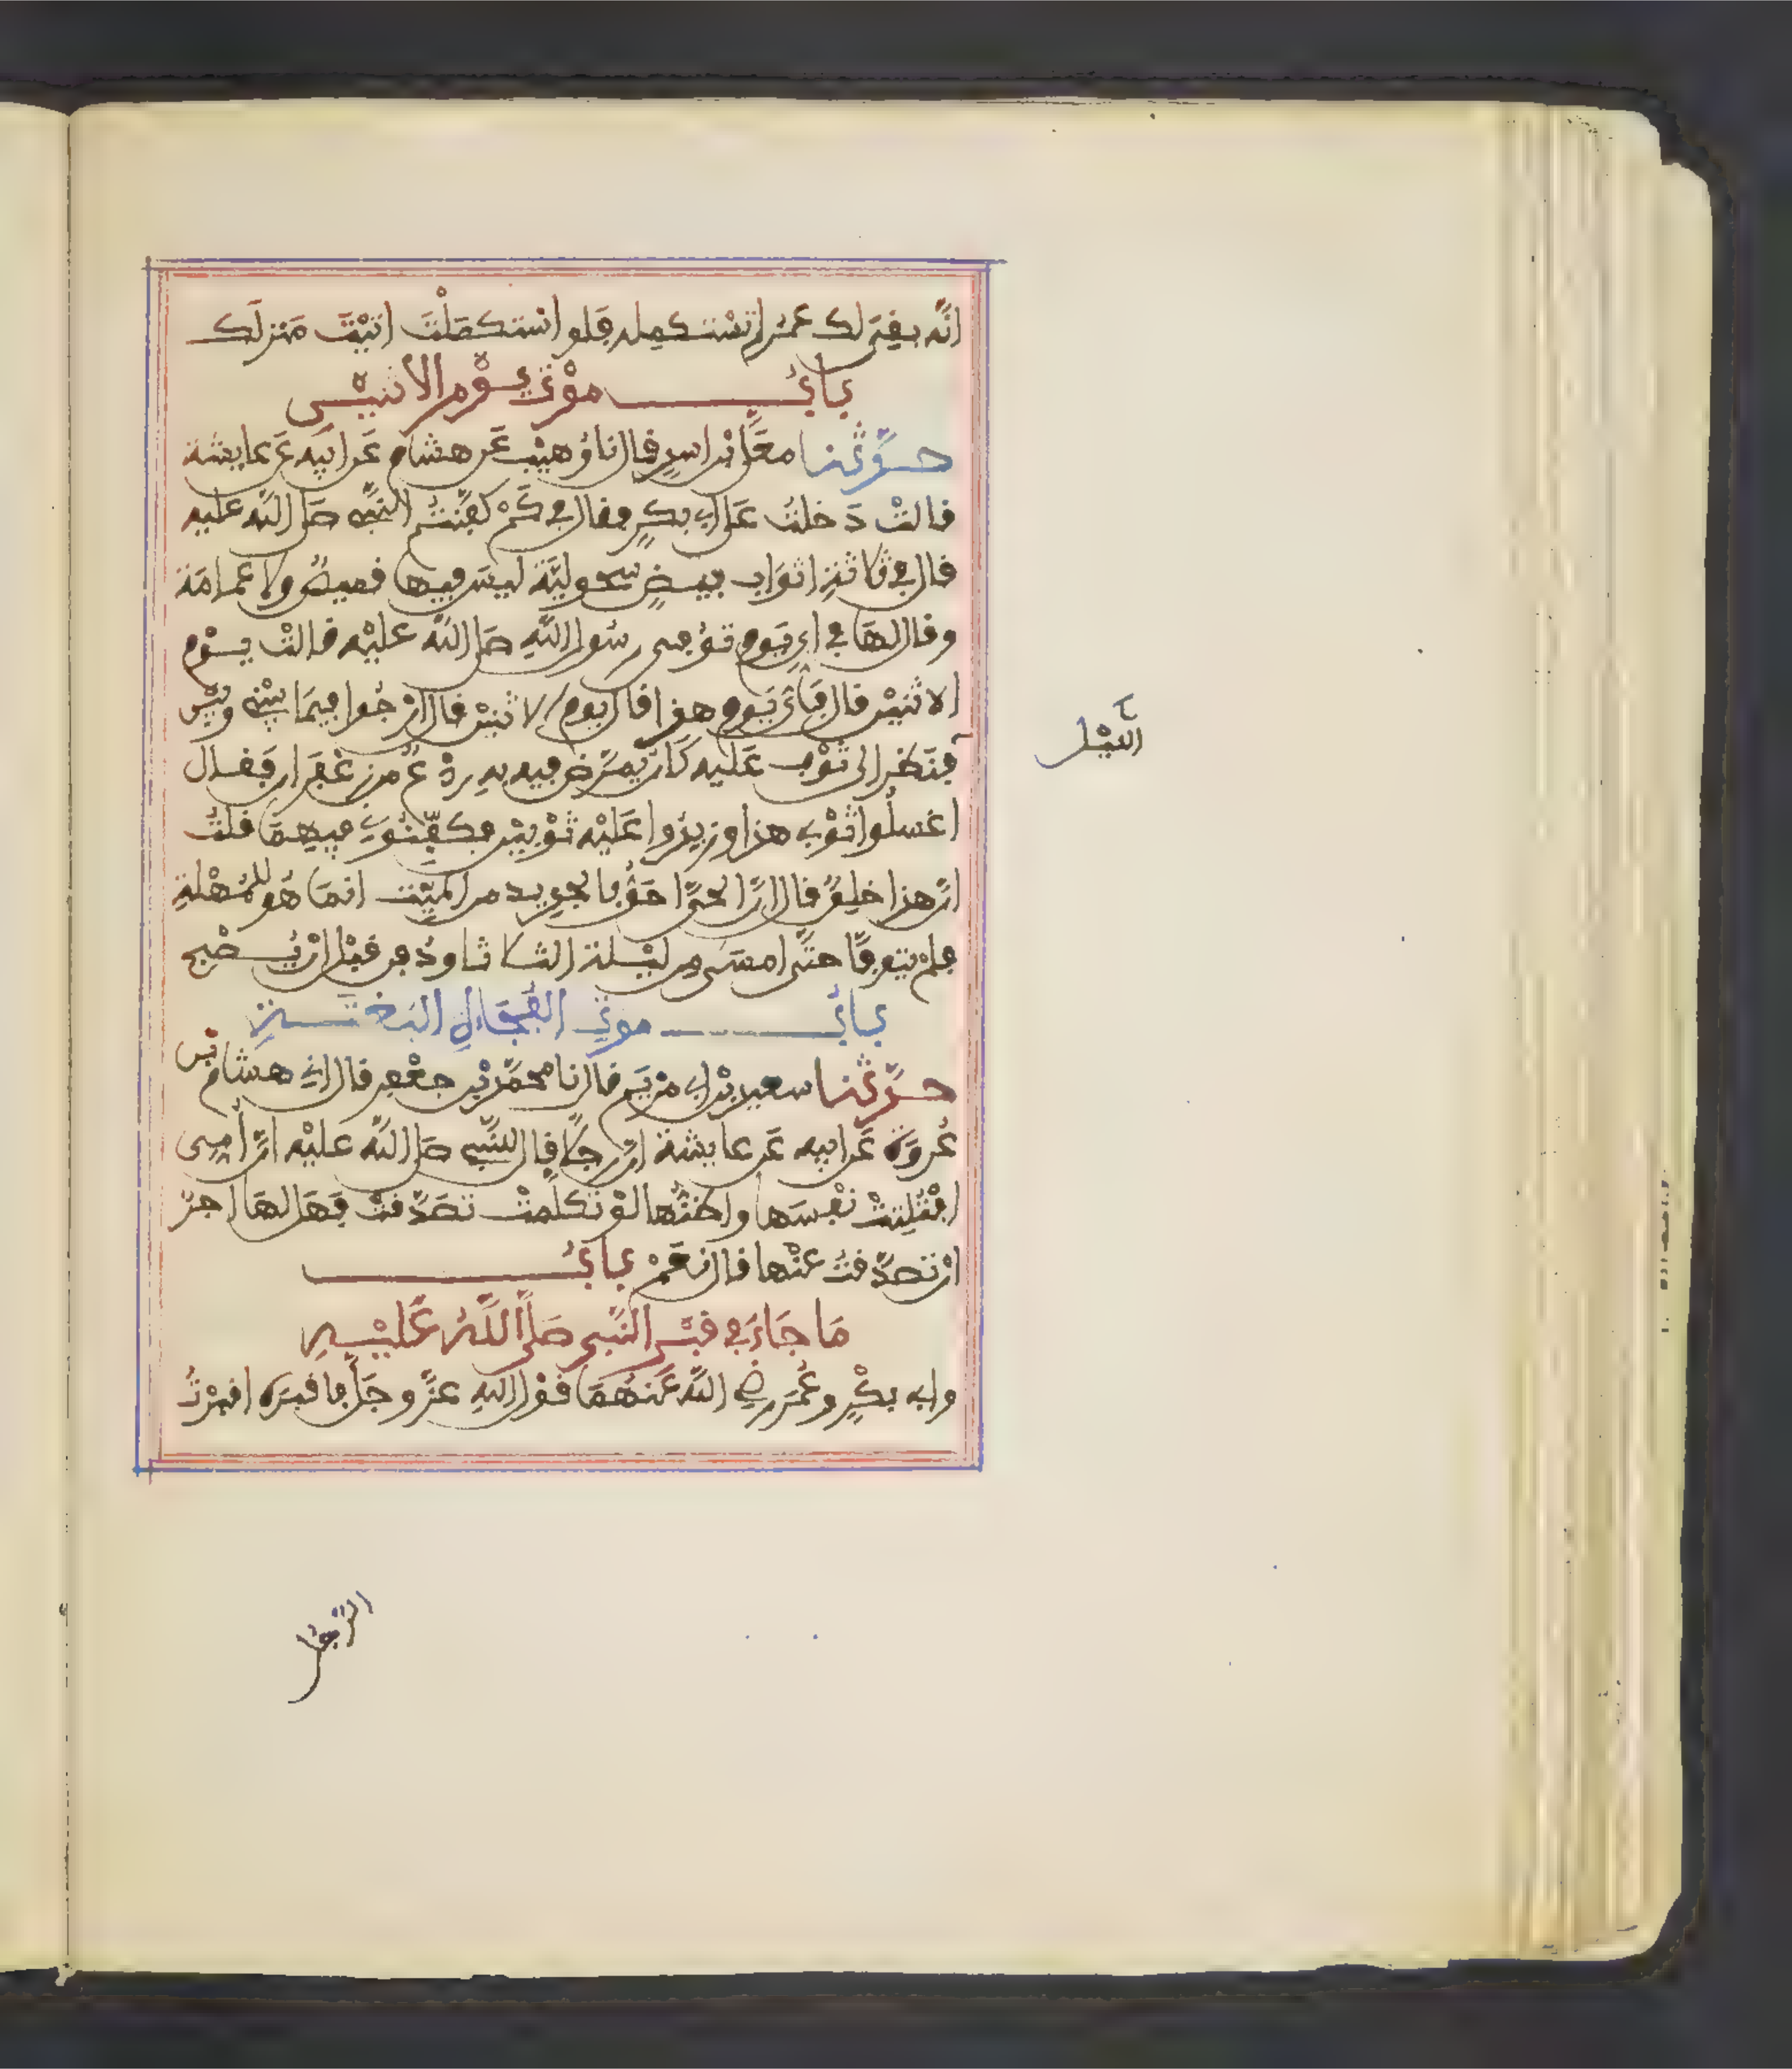 انه بقي لك عمر لم تستكمله فلو استكملت اتيت منزلك
باب موت يوم الاثنين
حدثنا معلى بن اسد قال نا وهيب عن هشام عن ابيه عن عايشة
قالت دخلت على ابي بكر فقال في كم كفنتم النبي صلى الله عليه
قال في ثلاثة اثواب بيض سحولية ليس فيها قميص ولا عمامة
وقال لها في اي يوم توفي رسول الله صلى الله عليه قالت يوم
الاثنين قال فاي يوم هذا قال يوم الاثنين قال ارجوا فيما بيني وبين
الليل
فنظر الى ثوب عليه كان يمرض فيه به ردع من زعفران فقال
اغسلوا ثوبي هذا وزيدوا عليه ثوبين فكفنوني فيهما قلت
ان هذا خلق قال ان الحي احق بالجديد من الميت انما هو للمهلة
فلم يتوفا حتى امسى من ليلة الثلاثا ودفن قبل ان يصبح
باب موت الفجاءة البغتة
حدثنا سعيد بن ابي مريم قال نا محمد بن جعفر قال اني هشام بن
عروة عن ابيه عن عايشة ان رجلا قال للنبي صلى الله عليه ان امي
افتلتت نفسها واظنها لو تكلمت تصدقت فهل لها اجر
ان تصدقت عنها قال نعم باب
ما جاء في قبر النبي صلى الله عليه
وابي بكر وعمر رضي الله عنهما قول الله عز وجل فاقبره اقبرت
الرجل